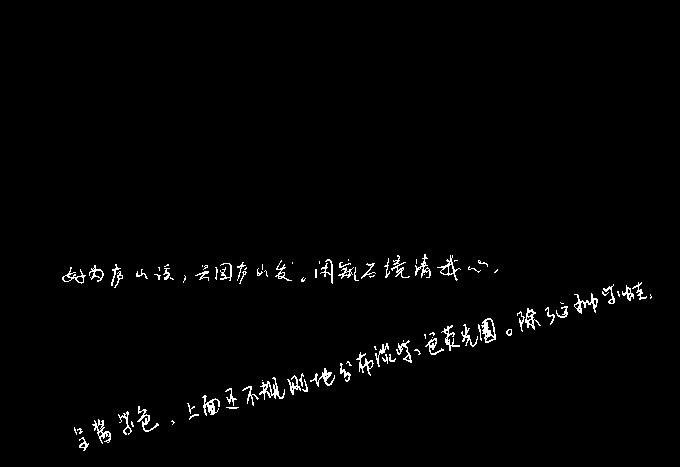 好为庐山谣，兴因庐山发。闲窥石镜清我心，
呈酱紫色，上面还不规则地分布淡紫色荧光圈。除了这种紫蛙，